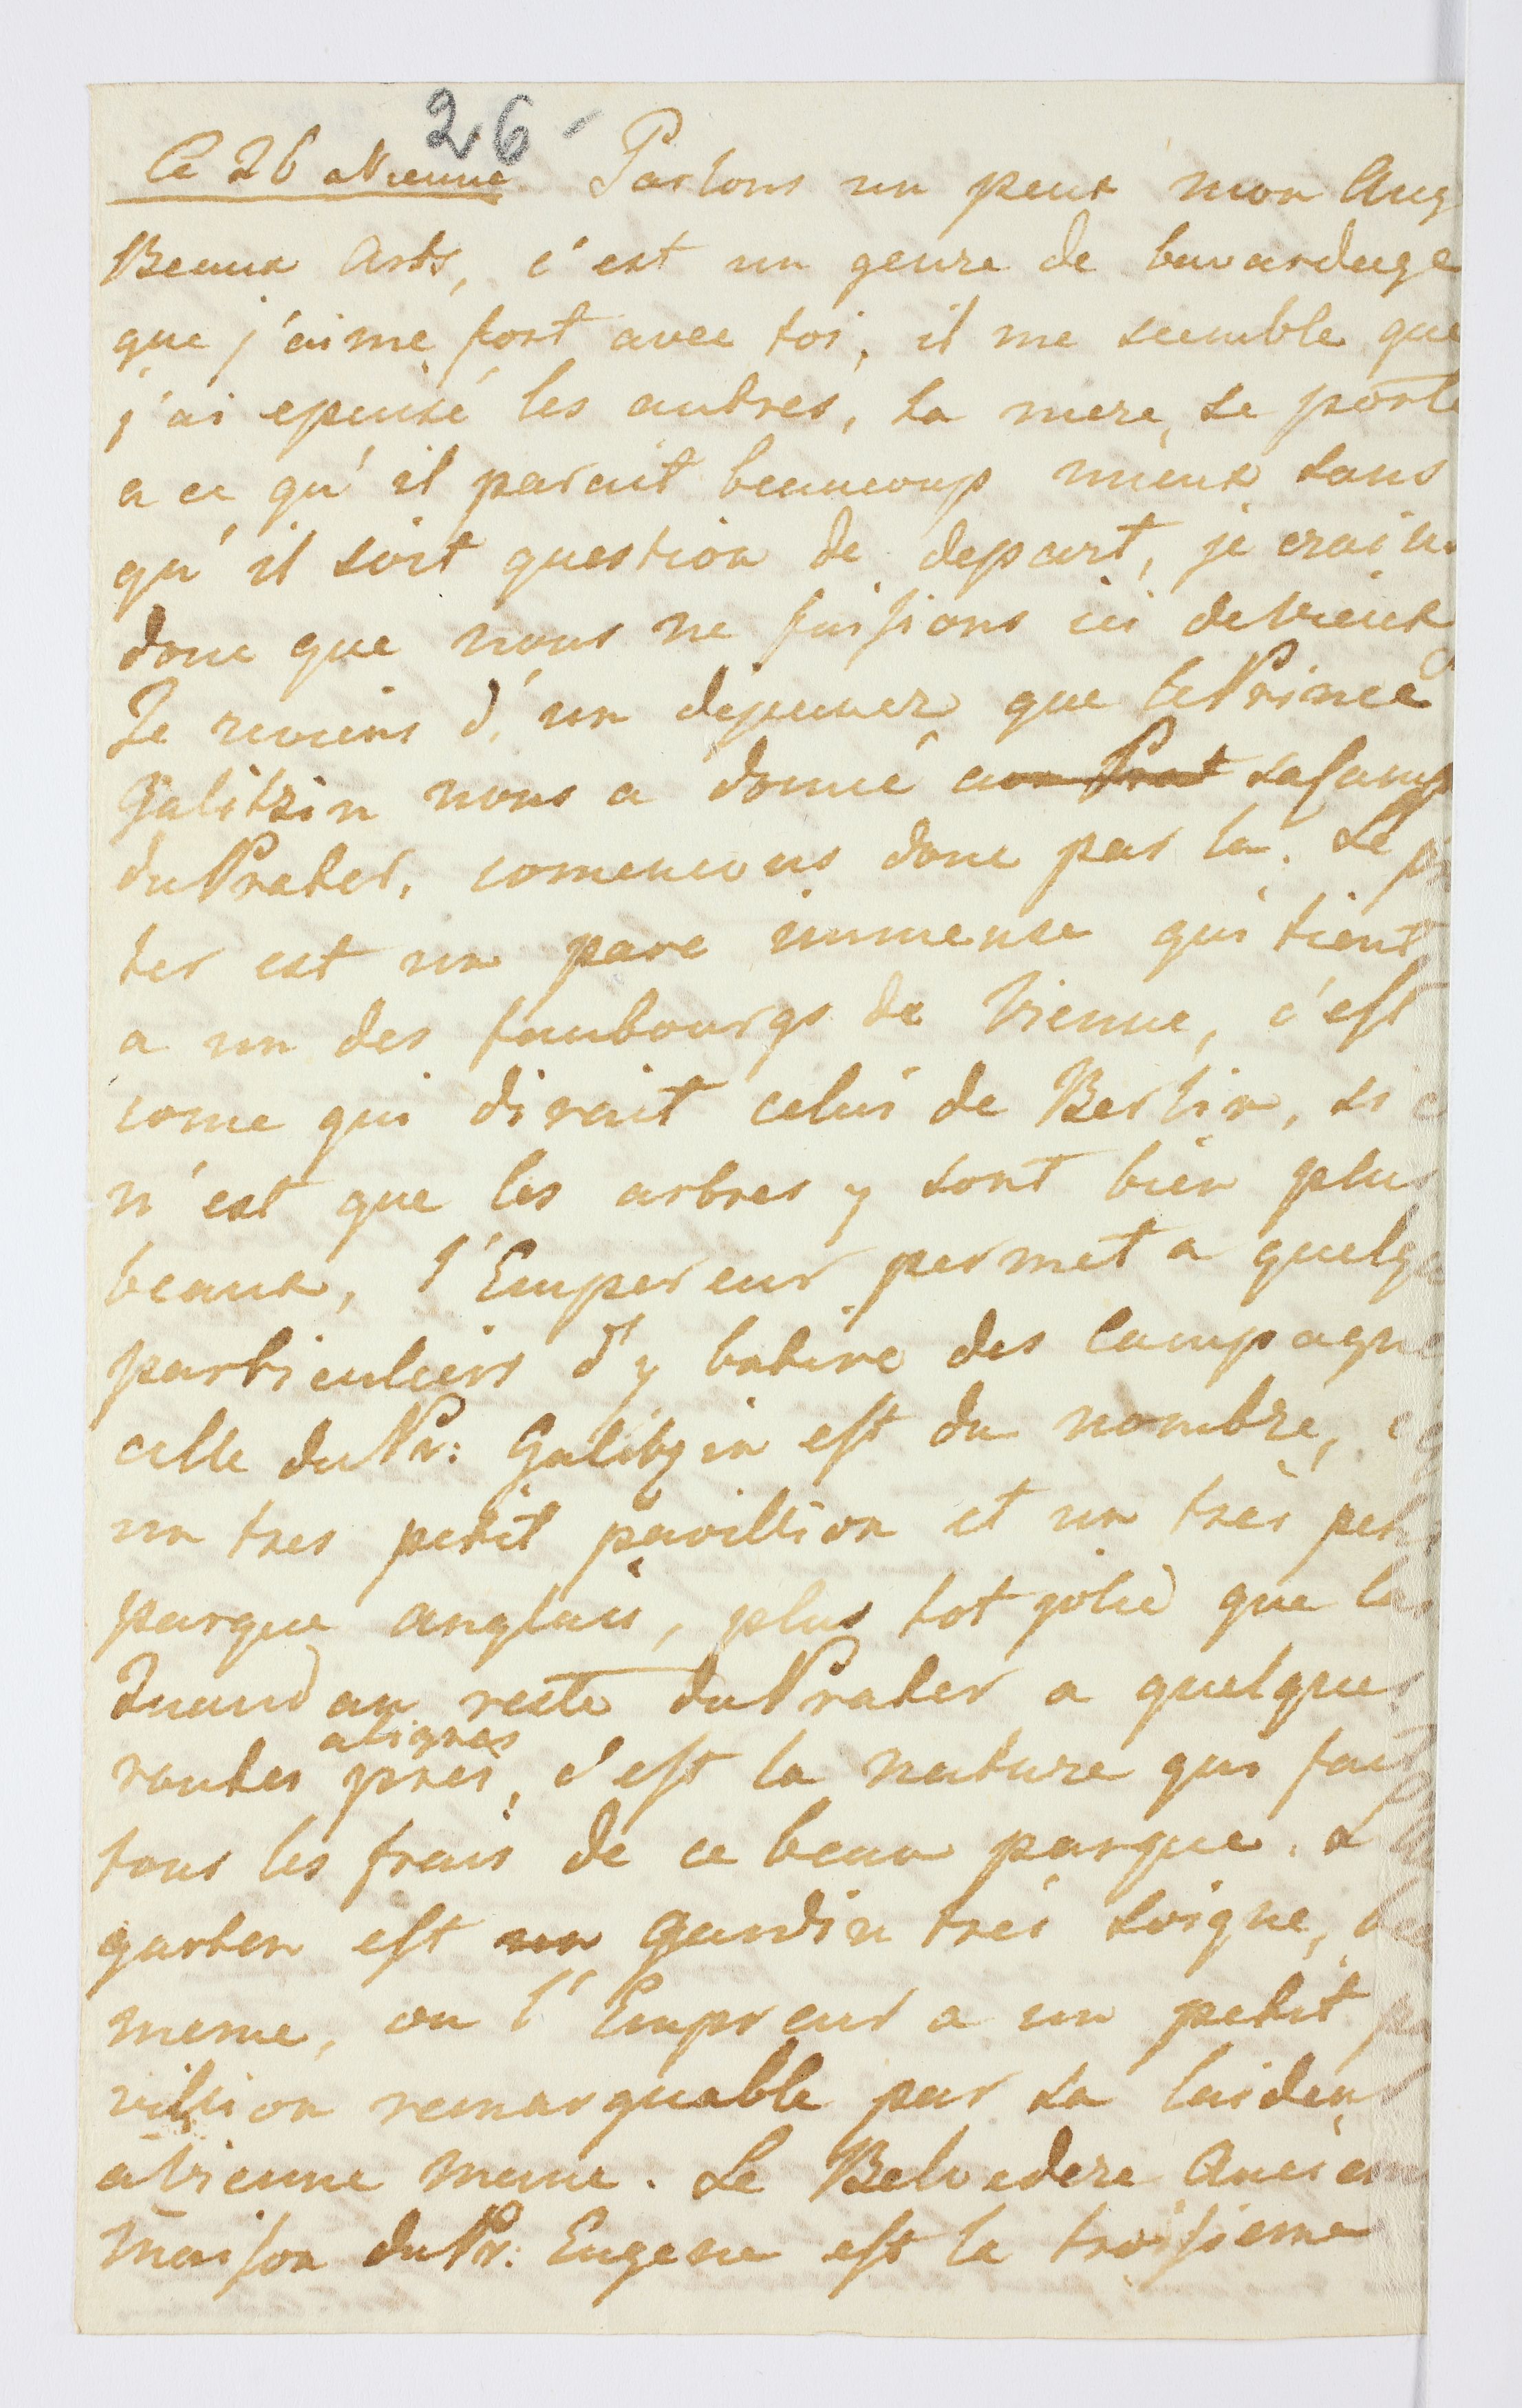 26
Ce 26 a Vienne Parlons un peux mon Ang
Beaux Arts, c'est un genre de bavardage
que j'aime fort avec toi, il me semble que
j'ai epuisé les autres, ta mere, se porte
a ce qu'il parait beaucoup mieux sans
qu'il soit question de depart, je crains
donc que nous ne faisions ici de vieux
Je reviens d'un dejeuner que le Prince
Galitzin nous a donné a sa camp
du Prater, comencons donc par la. Le pr
ter est un parc immense qui tient
a un des faubourgs de Vienne, c'est
come qui dirait celui de Berlin, si c
n'est que les arbres y sont bien plus
beaux, l'Empereur permet a quelqu
particuliers d'y batire des Campagne
celle du Pr: Galitzin est du nombre, c
un tres petit pavillion et un tres peti
parque anglais, plus tot jolie que
quand au reste du Prater a quelques
alignes
routes pres, c'est la nature qui fait
tous les frais de ce beau parque.
garten est un Gardin tres soigne,
meme, ou l'Empreur a un petit pa
villion remarquable par sa laideur
a Vienne meme. Le Belvedere Ancien
Maison du Pr: Eugene est la troisieme